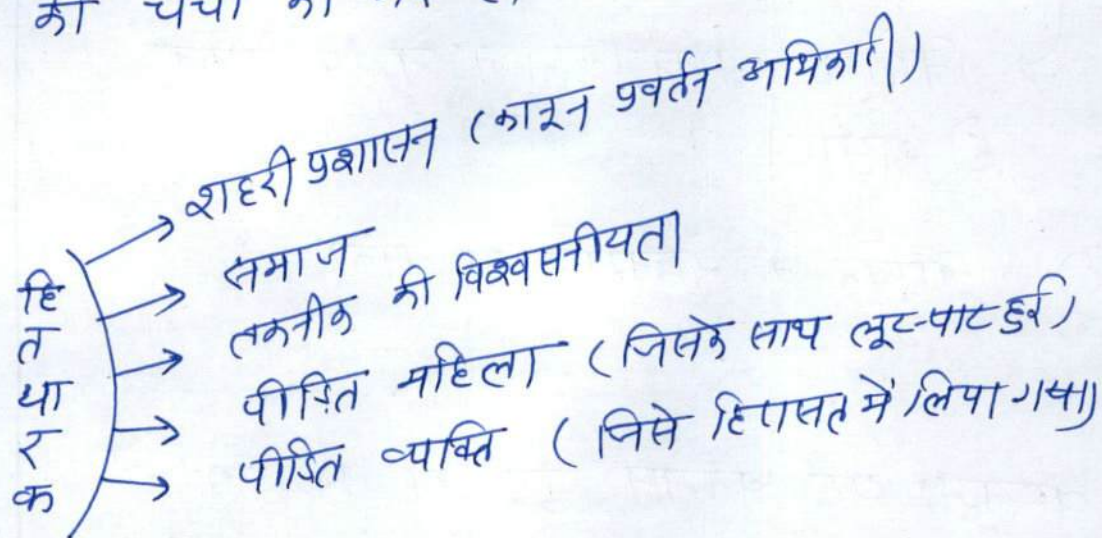 का चर्चा की
शहरी प्रशासन (कानून प्रवर्तन अधिकारी)
समाज
तकनीक की विश्वसनीयता
पीड़ित महिला (जिसके साथ लूट-पाट हुई)
पीड़ित व्यक्ति (जिसे हिरासत में लिया गया)
हितधारक